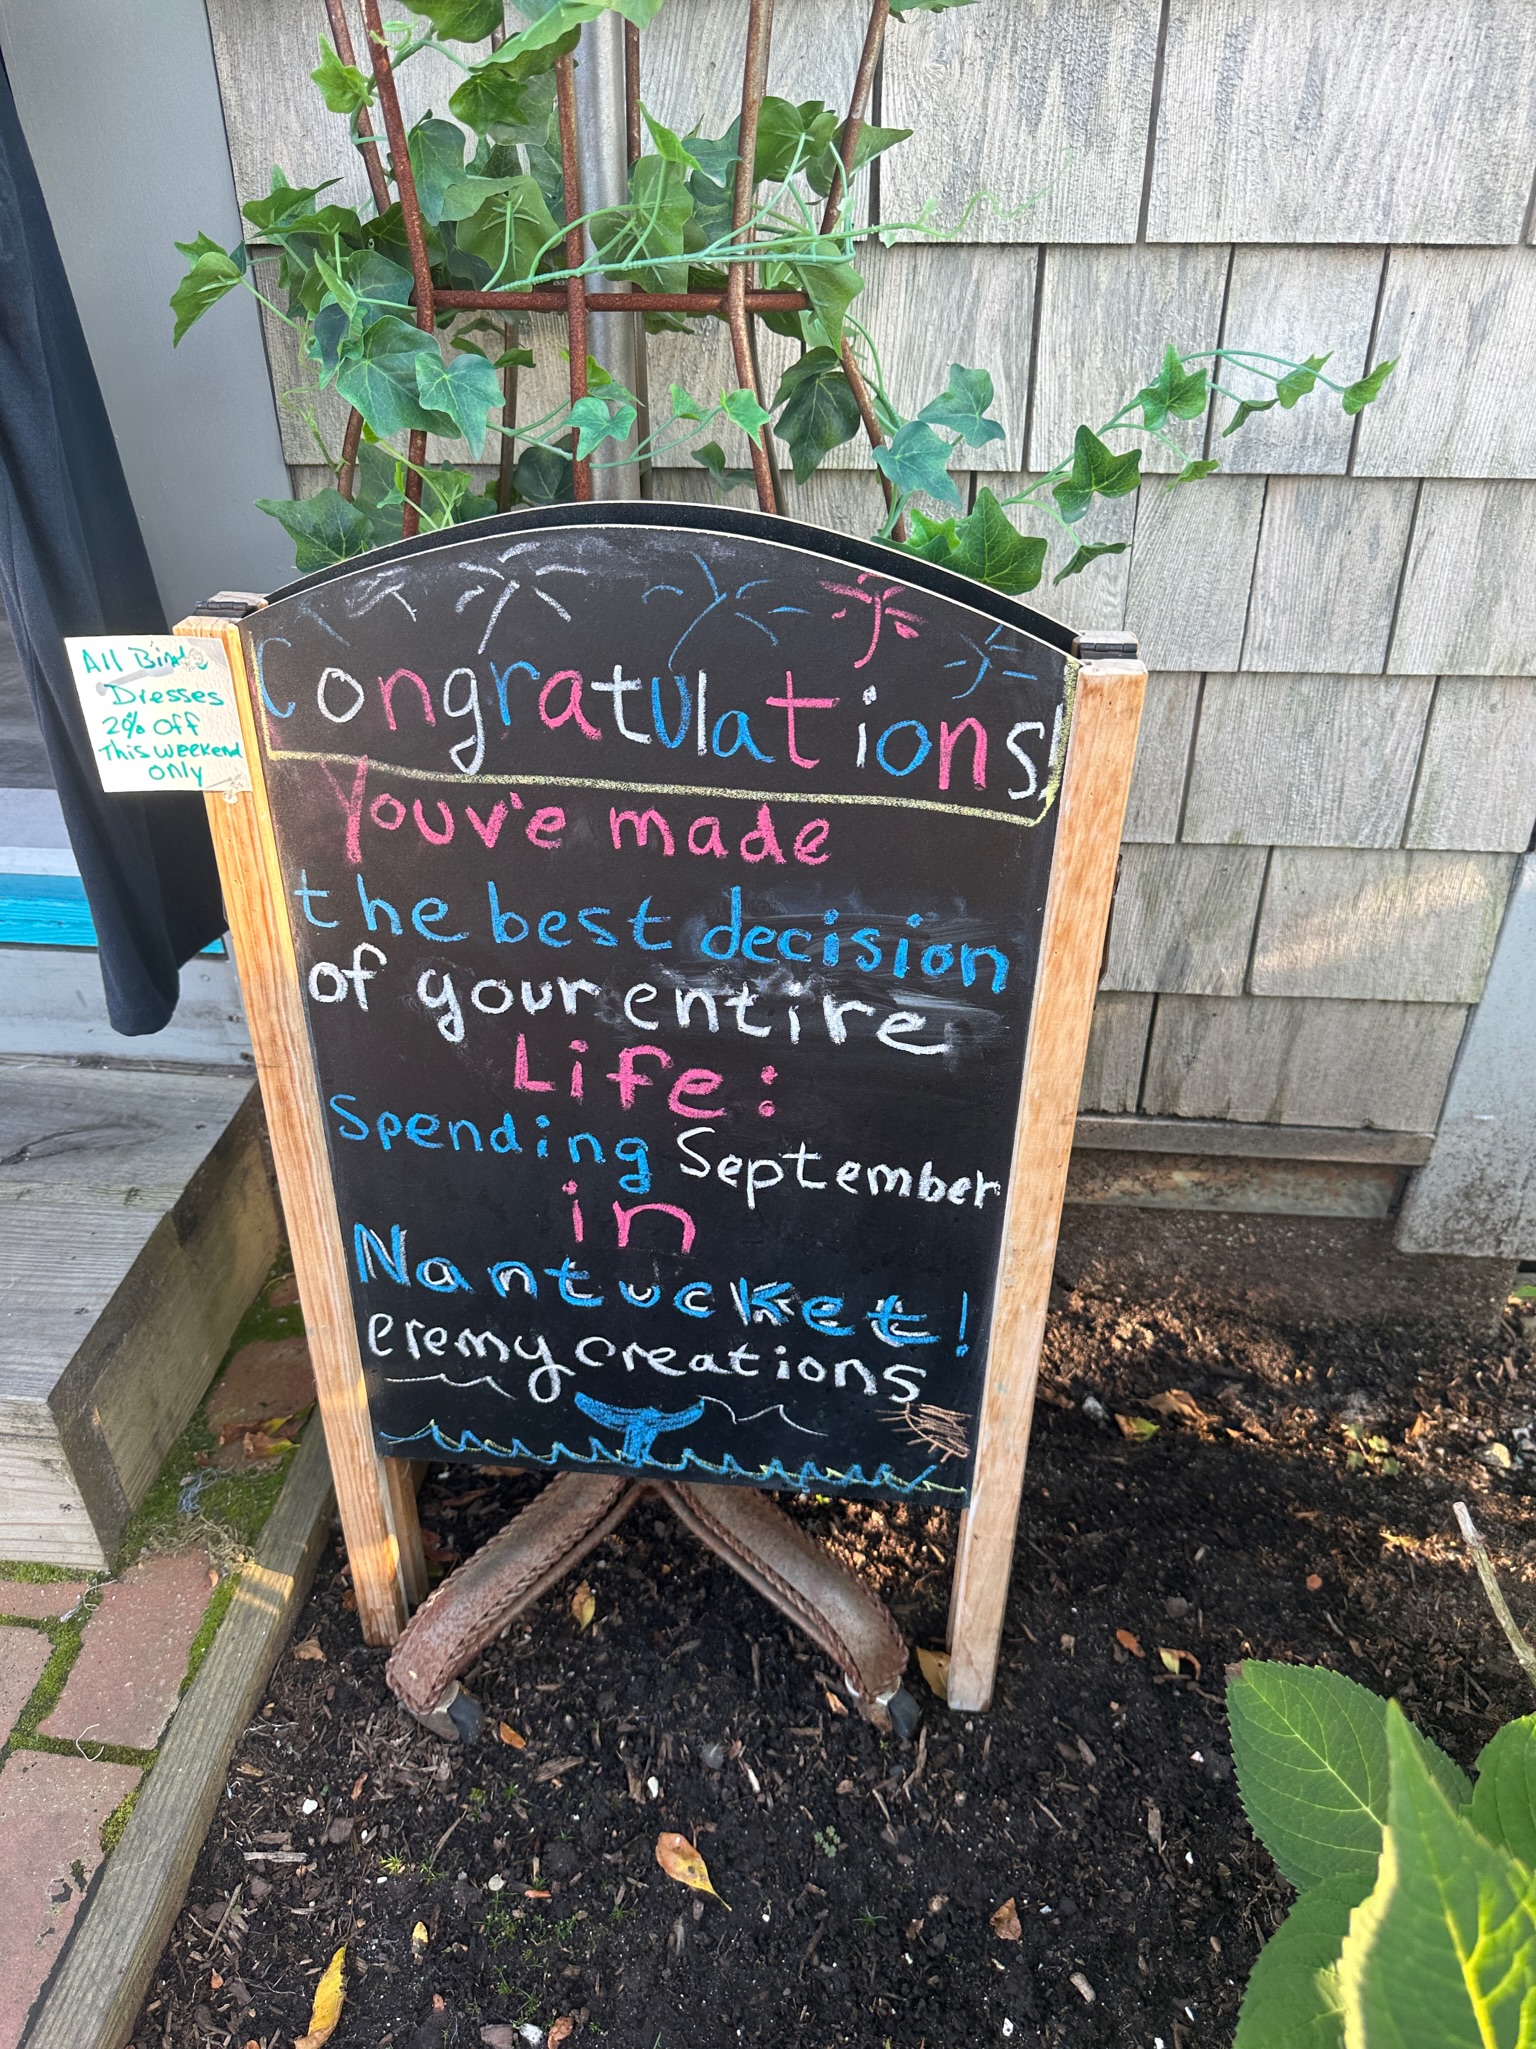 Congratulations!
You've made
the best decision
of your entire
Life:
Spending September
in
Nantucket!
eremy creations
All Birds
Dresses
20% Off
This weekend
only